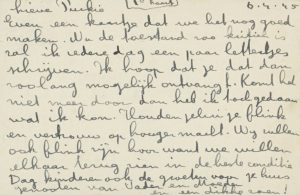 Lieve Suckie [1e kaart] 6.4.45
Even een kaartje dat we het nog goed
maken. Nu de toestand zoo kritiek is
zal ik iedere dag een paar lettertjes
schrijven. Ik hoop dat je dat dan
zoo lang mogelijk ontvangt. Komt het
niet meer door dan heb ik toch gedaan
wat ik kon. Houden jelui je flink
en vertrouw op hooger macht. Wij willen
ook flink zijn hoor want we willen
elkaar terug zien in de beste conditie
Dag kinderen ook de groeten voor je huis
genooten van Vader en Moeder
en een dikke